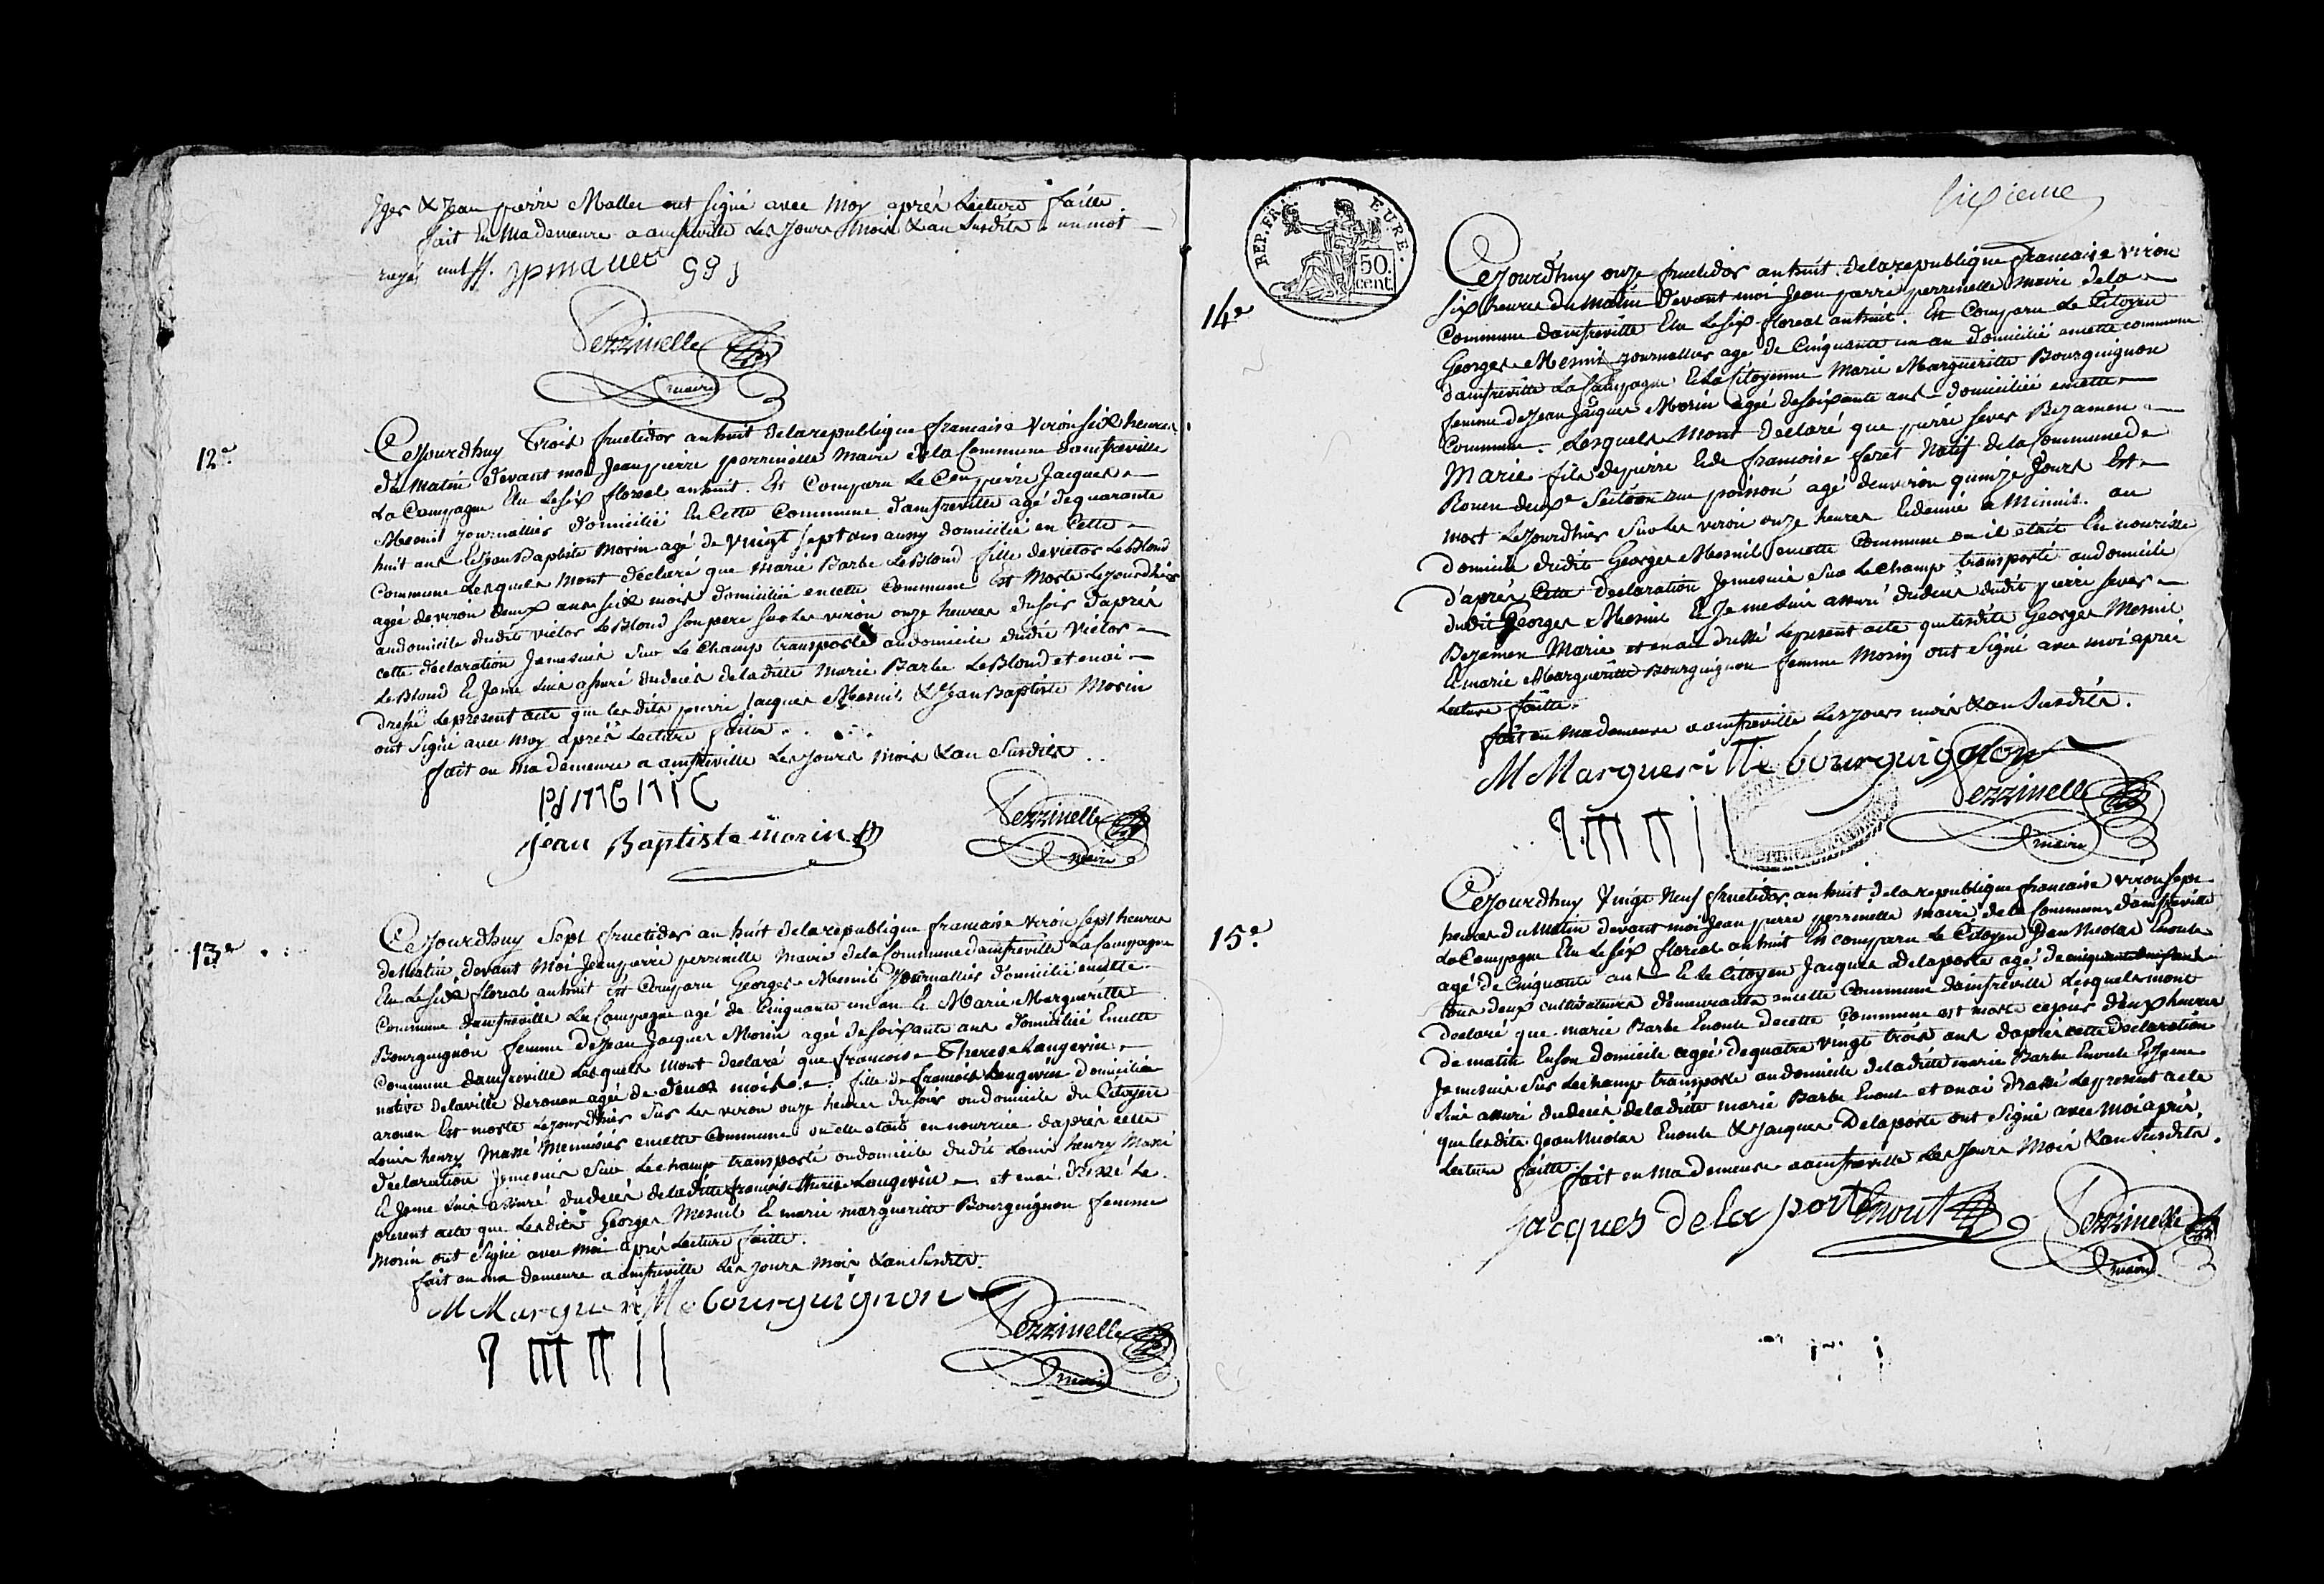 & Jean pierre Mallet ont signé avec Moy après Lecture faitte
fait En Ma demeure a amfreville Les Jours Mois & an Susdits un mot
rayé nul
jpmallet
Perrinelle
maire
12e
Cejourdhuy Trois fructidor an huit de la republique francaise viron six heures
du Matin devant moi Jean pierre perrinelle Maire de la Commune damfreville
La Campagne Elu Le six floreal an huit. Est Comparu Le Cen pierre Jacques
Mesnil Journallier domicilié En Cette Commune damfreville agé de quarante
huit ans Et Jean Baptiste Morin agé de vingt sept ans aussy domicilié en Cette
Commune Lesquels Mont déclaré que Marie Barbe Le Blond fille de victor Le Blond
agé de viron deux ans six mois domiciliée en cette Commune Est Morte Le jourdhier
au domicile dudit victor Le Blond son pere sur Les viron onze heures du soir d'après
cette déclaration Je me suis sur Le Champ transporté au domicile dudit Victor
Le Blond Et Je me suis assuré du décés de la ditte Marie Barbe Le Blond et en ai
dressé Le present acte que Les dits pierre Jacques Mesnil & Jean Baptiste Morin
ont signé avec Moy après Lecture faitte
fait en Ma demeure a amfreville Les Jours Mois & an Susdits
PJMENIL
jean Baptiste morin
Perrinelle
maire
13e
Cejourdhuy Sept fructidor an huit de la republique francaise viron sept heures
de Matin devant Moi Jean pierre perrinelle Maire de la Commune damfreville La Campagne
Elu Le six floreal an huit Est Comparu Georges Mesnil Journallier domicilié en cette
Commune damfreville La Campagne agé de Cinquante un an Et Marie Margueritte
Bourguignon femme de Jean Jacques Morin agée de soixante ans domiciliée En cette
Commune damfreville Lesquels Mont declaré que francoise Therese Langevin
native de la ville de rouen agée de deux mois fille de francois Langevin domicilié
a rouen Est morte Le jourdhier sur Les viron onze heures du soir au domicile du Citoyen
Louis henry Massé Menuisier en cette Commune ou elle etait en nourrice d'après cette
declaration Je me suis sur Le champ transporté au domicile dudit Louis henry Massé
Et Je me suis assuré du décés de la ditte francoise therese Langevin et en ai dressé Le
present acte que Les dits Georges Mesnil Et marie margueritte Bourguignon femme
Morin ont Signé avec Moi après Lecture faitte.
fait en ma demeure a amfreville Les Jours Mois & an Susdits.
M Margueritte bourguignon
Perrinelle
maire
sixieme
REP. FR. EURE.
50
cent.
14e
Cejourdhuy onze fructidor an huit de la republique francaise viron
six heures du Matin devant moi Jean pierre perrinelle Maire de la
Commune damfreville Elu Le six floreal an huit. Est Comparu Le Citoyen
Georges Mesnil Journallier agé de Cinquante un an domicilié en cette commune
damfreville La Campagne Et La Citoyenne Marie Margueritte Bourguignon
femme de Jean Jacques Morin agée de soixante ans domiciliée en cette
Commune. Lesquels Mont declaré que pierre sever Bezamen
Marie fils de pierre Et de francoise feret Natif de la Commune de
Rouen deuxe Section rue poisson agé d'environ quinze Jours Est
mort Le jourdhier sur Les viron onze heures Et demie a Minuit. au
domicile dudit Georges Mesnil en cette Commune ou il etait En nourrice
d'après Cette declaration Je me suis sur Le champ transporté au domicile
dudit Georges Mesnil Et Je me suis assuré du decés dudit pierre sever
Bezamen Marie et en ai dressé Le present acte que Les dits Georges Mesnil
Et marie Margueritte Bourguignon femme Morin ont Signé avec moi après
Lecture faitte.
fait en Ma demeure a amfreville Les Jours mois & an Susdits.
M Margueritte bourguignon
Perrinelle
maire
15e
Cejourdhuy Vingt Neuf fructidor an huit de la republique francaise viron sept
heures du Matin devant moi Jean pierre perrinelle Maire de la Commune damfreville
La Campagne Elu Le six floreal an huit Est comparu Le Citoyen Jean Nicolas Enoult
agé de Cinquante ans Et le Citoyen Jacques Delaporte agé de
tous deux cultivateurs demeurants en cette Commune damfreville Lesquels mont
declaré que marie Barbe Enoult de cette Commune est morte ce jour deux heures
de matin En son domicile agée de quatre vingt trois ans d'après cette declaration
Je me suis sur Le champ transporté au domicile de la ditte marie Barbe Enoult Et Je me
suis assuré du decés de la ditte marie Barbe Enoult et en ai dressé Le present acte
que Les dits Jean Nicolas Enoult & Jacques Delaporte ont Signé avec Moi après
Lecture faitte.
fait en Ma demeure a amfreville Les Jours Mois & an Susdits.
jacques delaporte
Enoult
Perrinelle
maire